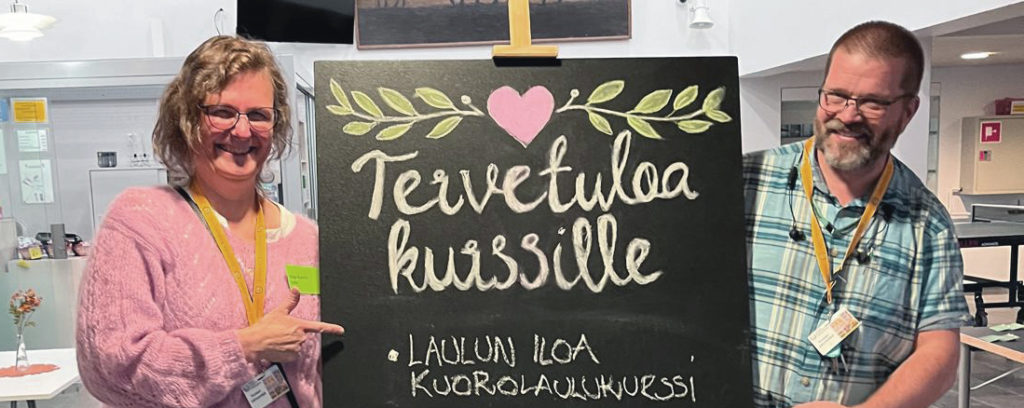 Tervetuloa
kurssille
• LAULUN ILOA
KUOROLAULUKURSSI